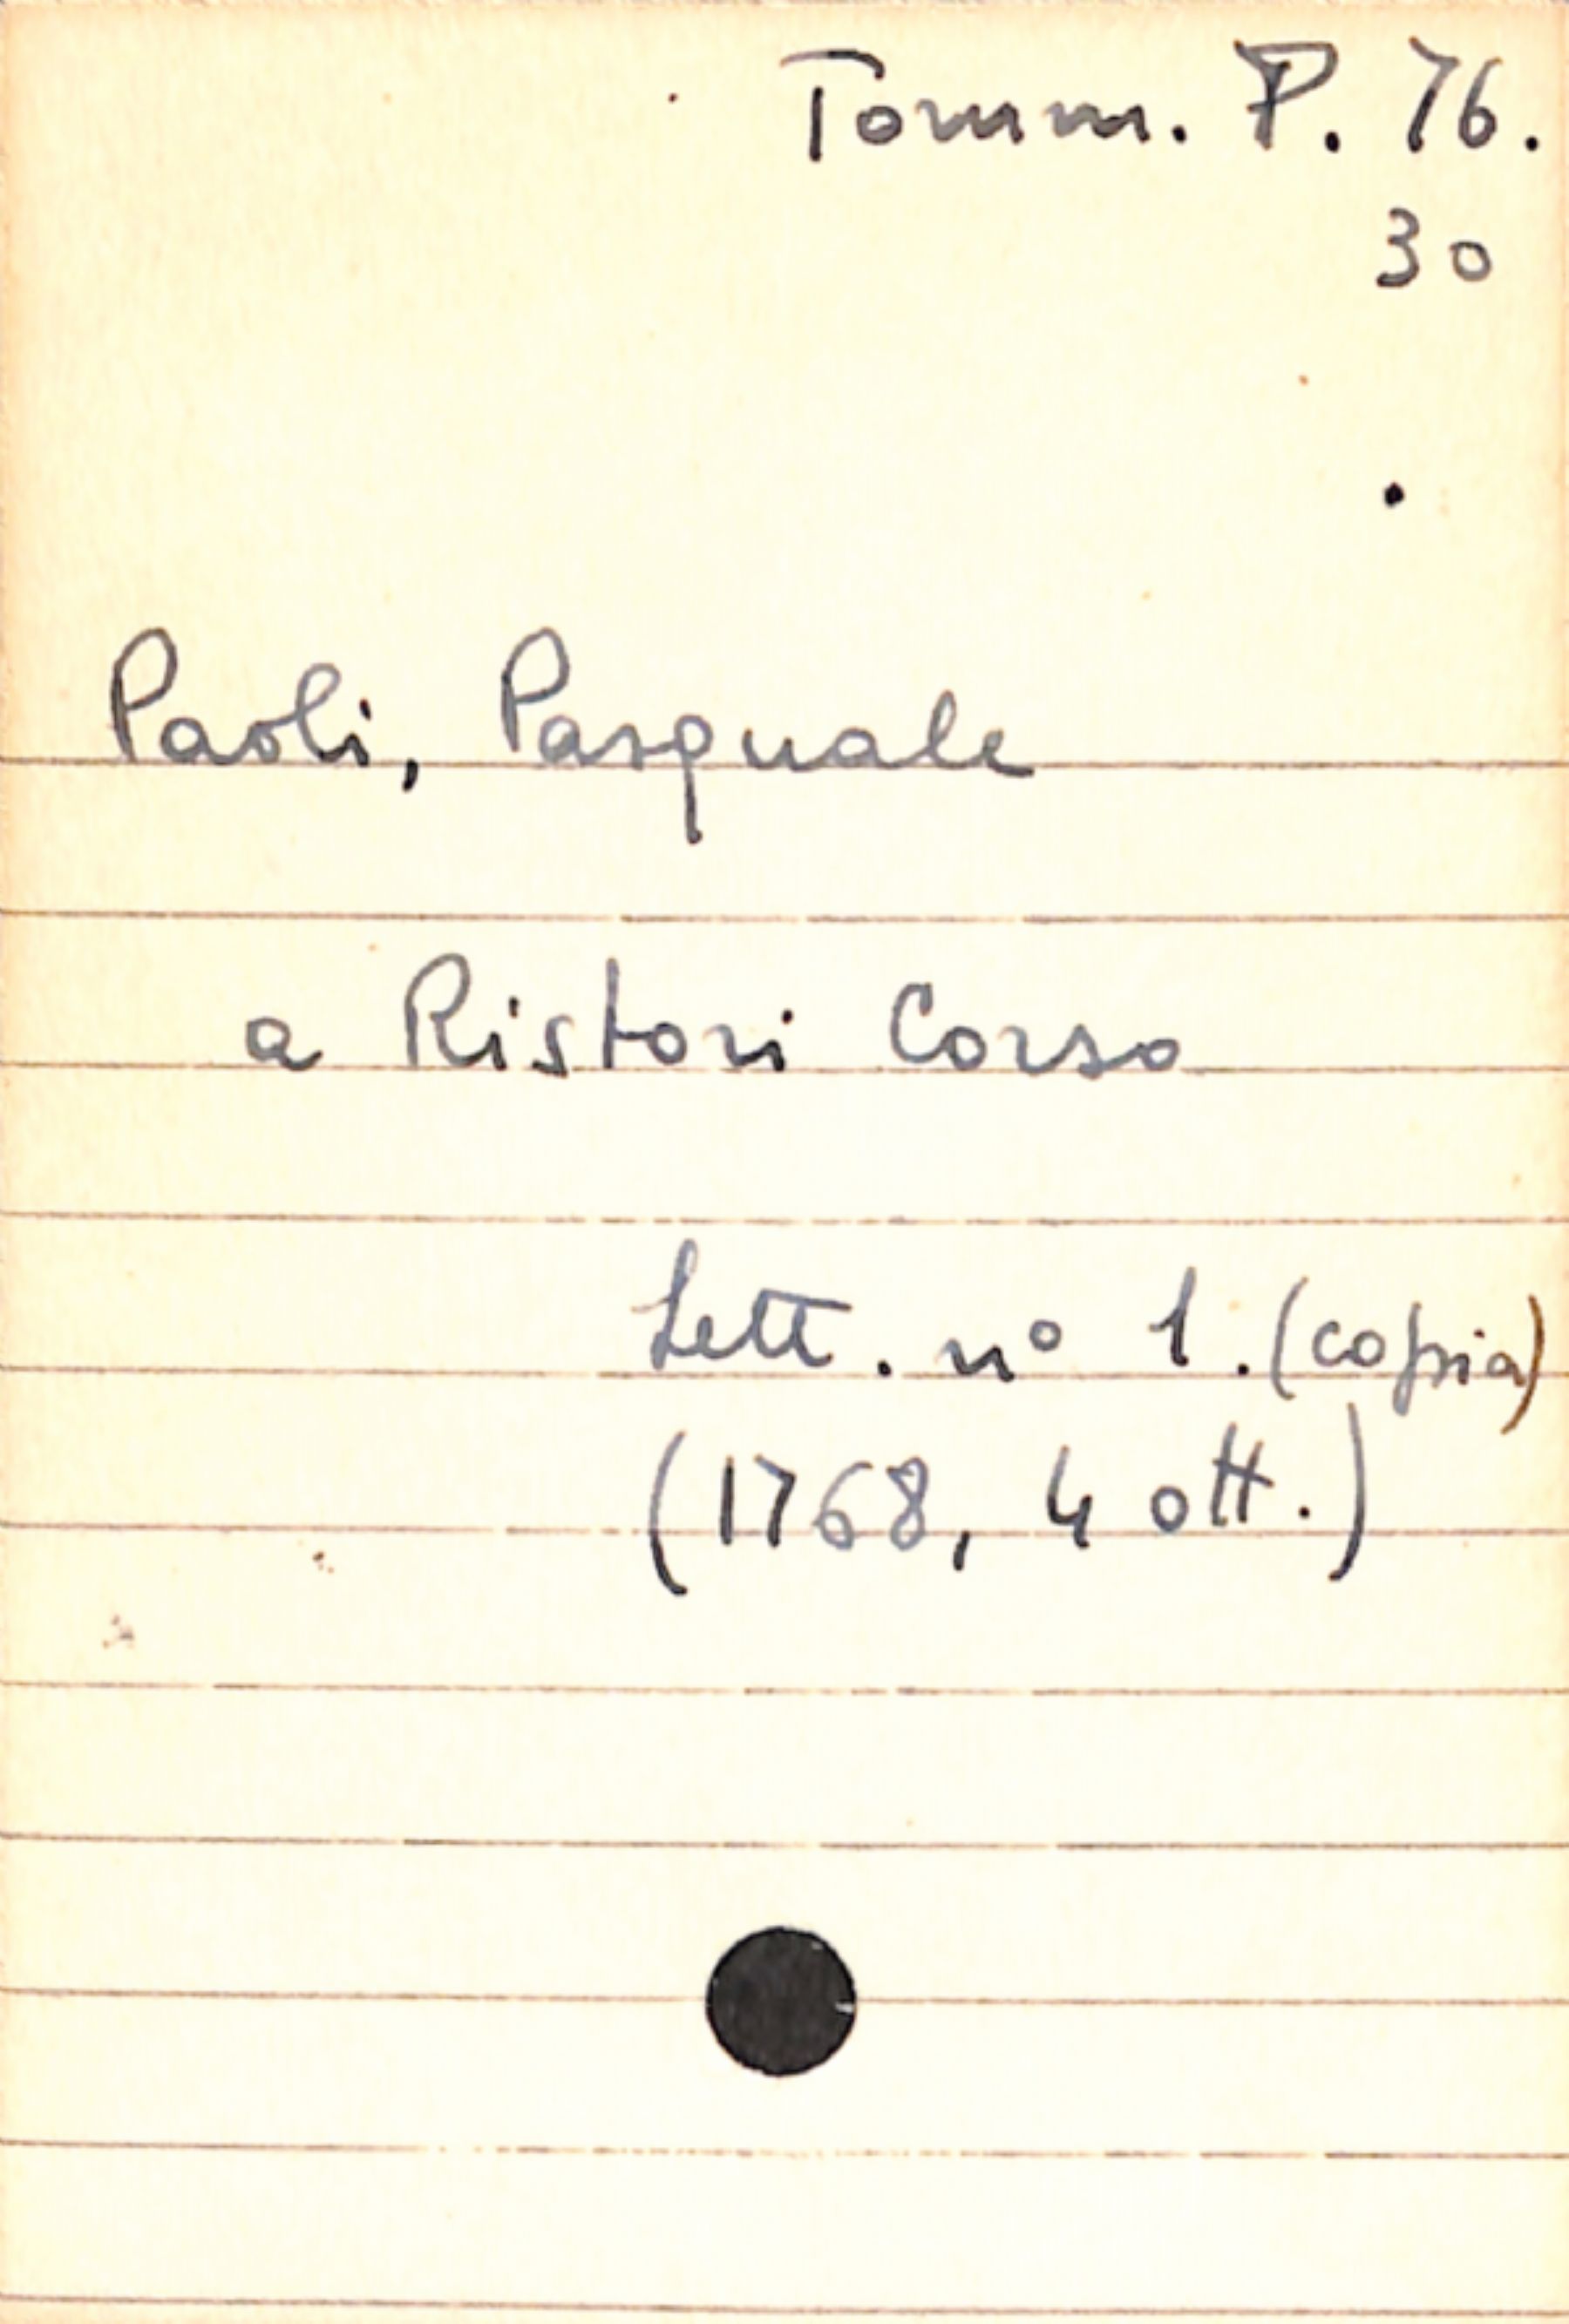 Tomm. P. 76.
30
Paoli, Pasquale
a Ristori Corso
Lett. nº 1. (copia)
(1768, 4 ott.)